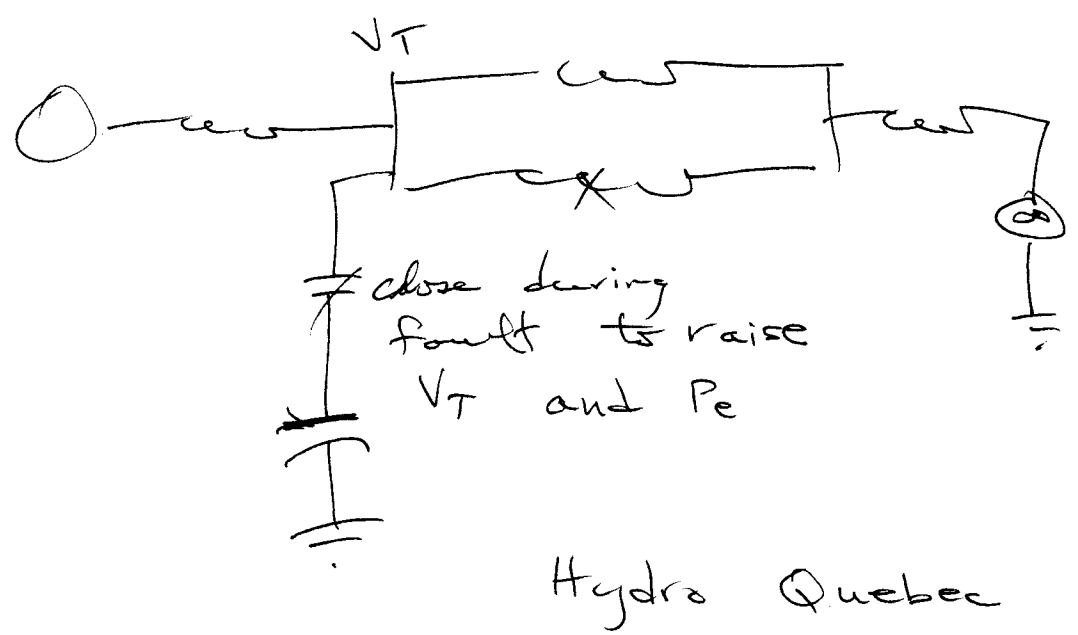 VT
∞
close during
fault to raise
VT and Pe
Hydro Quebec